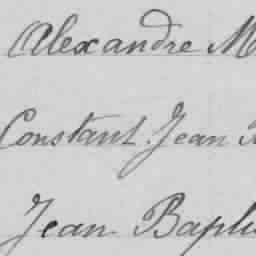 Alexandre M
Constant Jean
Jean Bapti